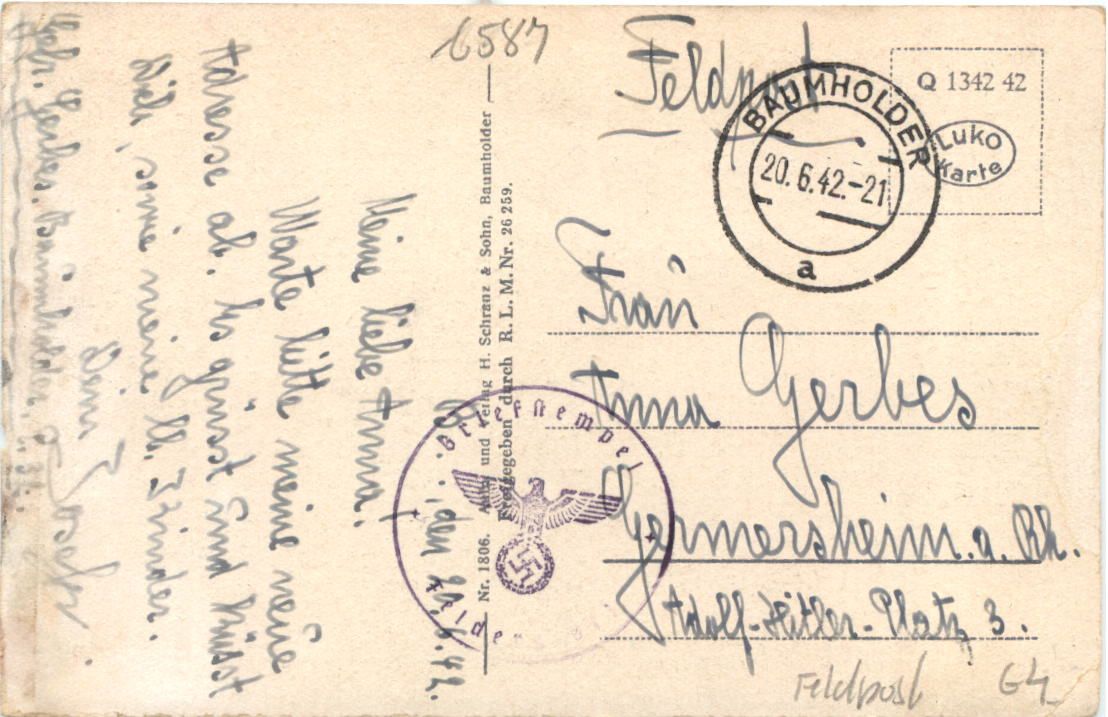 6587
Feldpost
Q 1342 42
Luko
Karte
BAUMHOLDER
20.6.42.-21
a
Frau
Anna Gerbes
Germersheim.a. Rh.
Adolf-Hitler-Platz 3.
Feldpost
G4
Nr. 1806. und Verlag H. Schranz & Sohn, Baumholder
Freigegeben durch R. L. M. Nr. 26 259.
Briefstempel
B. , den 20.6.42.
Meine liebe Anna!
Warte bitte meine neue
Adresse ab. Es grüsst und küsst
Dich, sowie meine ll. Kinder.
Dein Josef.
Gefr. Gerbes. Baumholder,